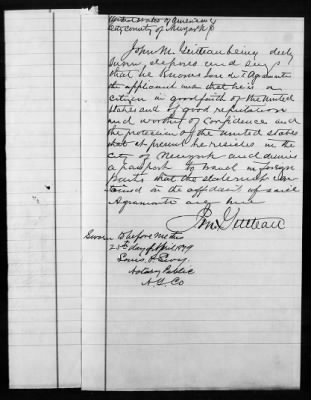 United States of America
City County of New York
John M. Guiteau being duly
sworn deposes and says
that he knows
the applicant and that he is a
citizen in good faith of the United
States and of good reputation
and worthy of confidence and
the protection of the United States
that at present he resides in the
city of New York and desires
a passport to travel in foreign
parts that the statements con
tained in the affidavit of said
Agramonte are true
Jno. M. Guiteau
Sworn to before me this
21st day of April 1879
Louis A. Levy
Notary Public
N.Y. Co